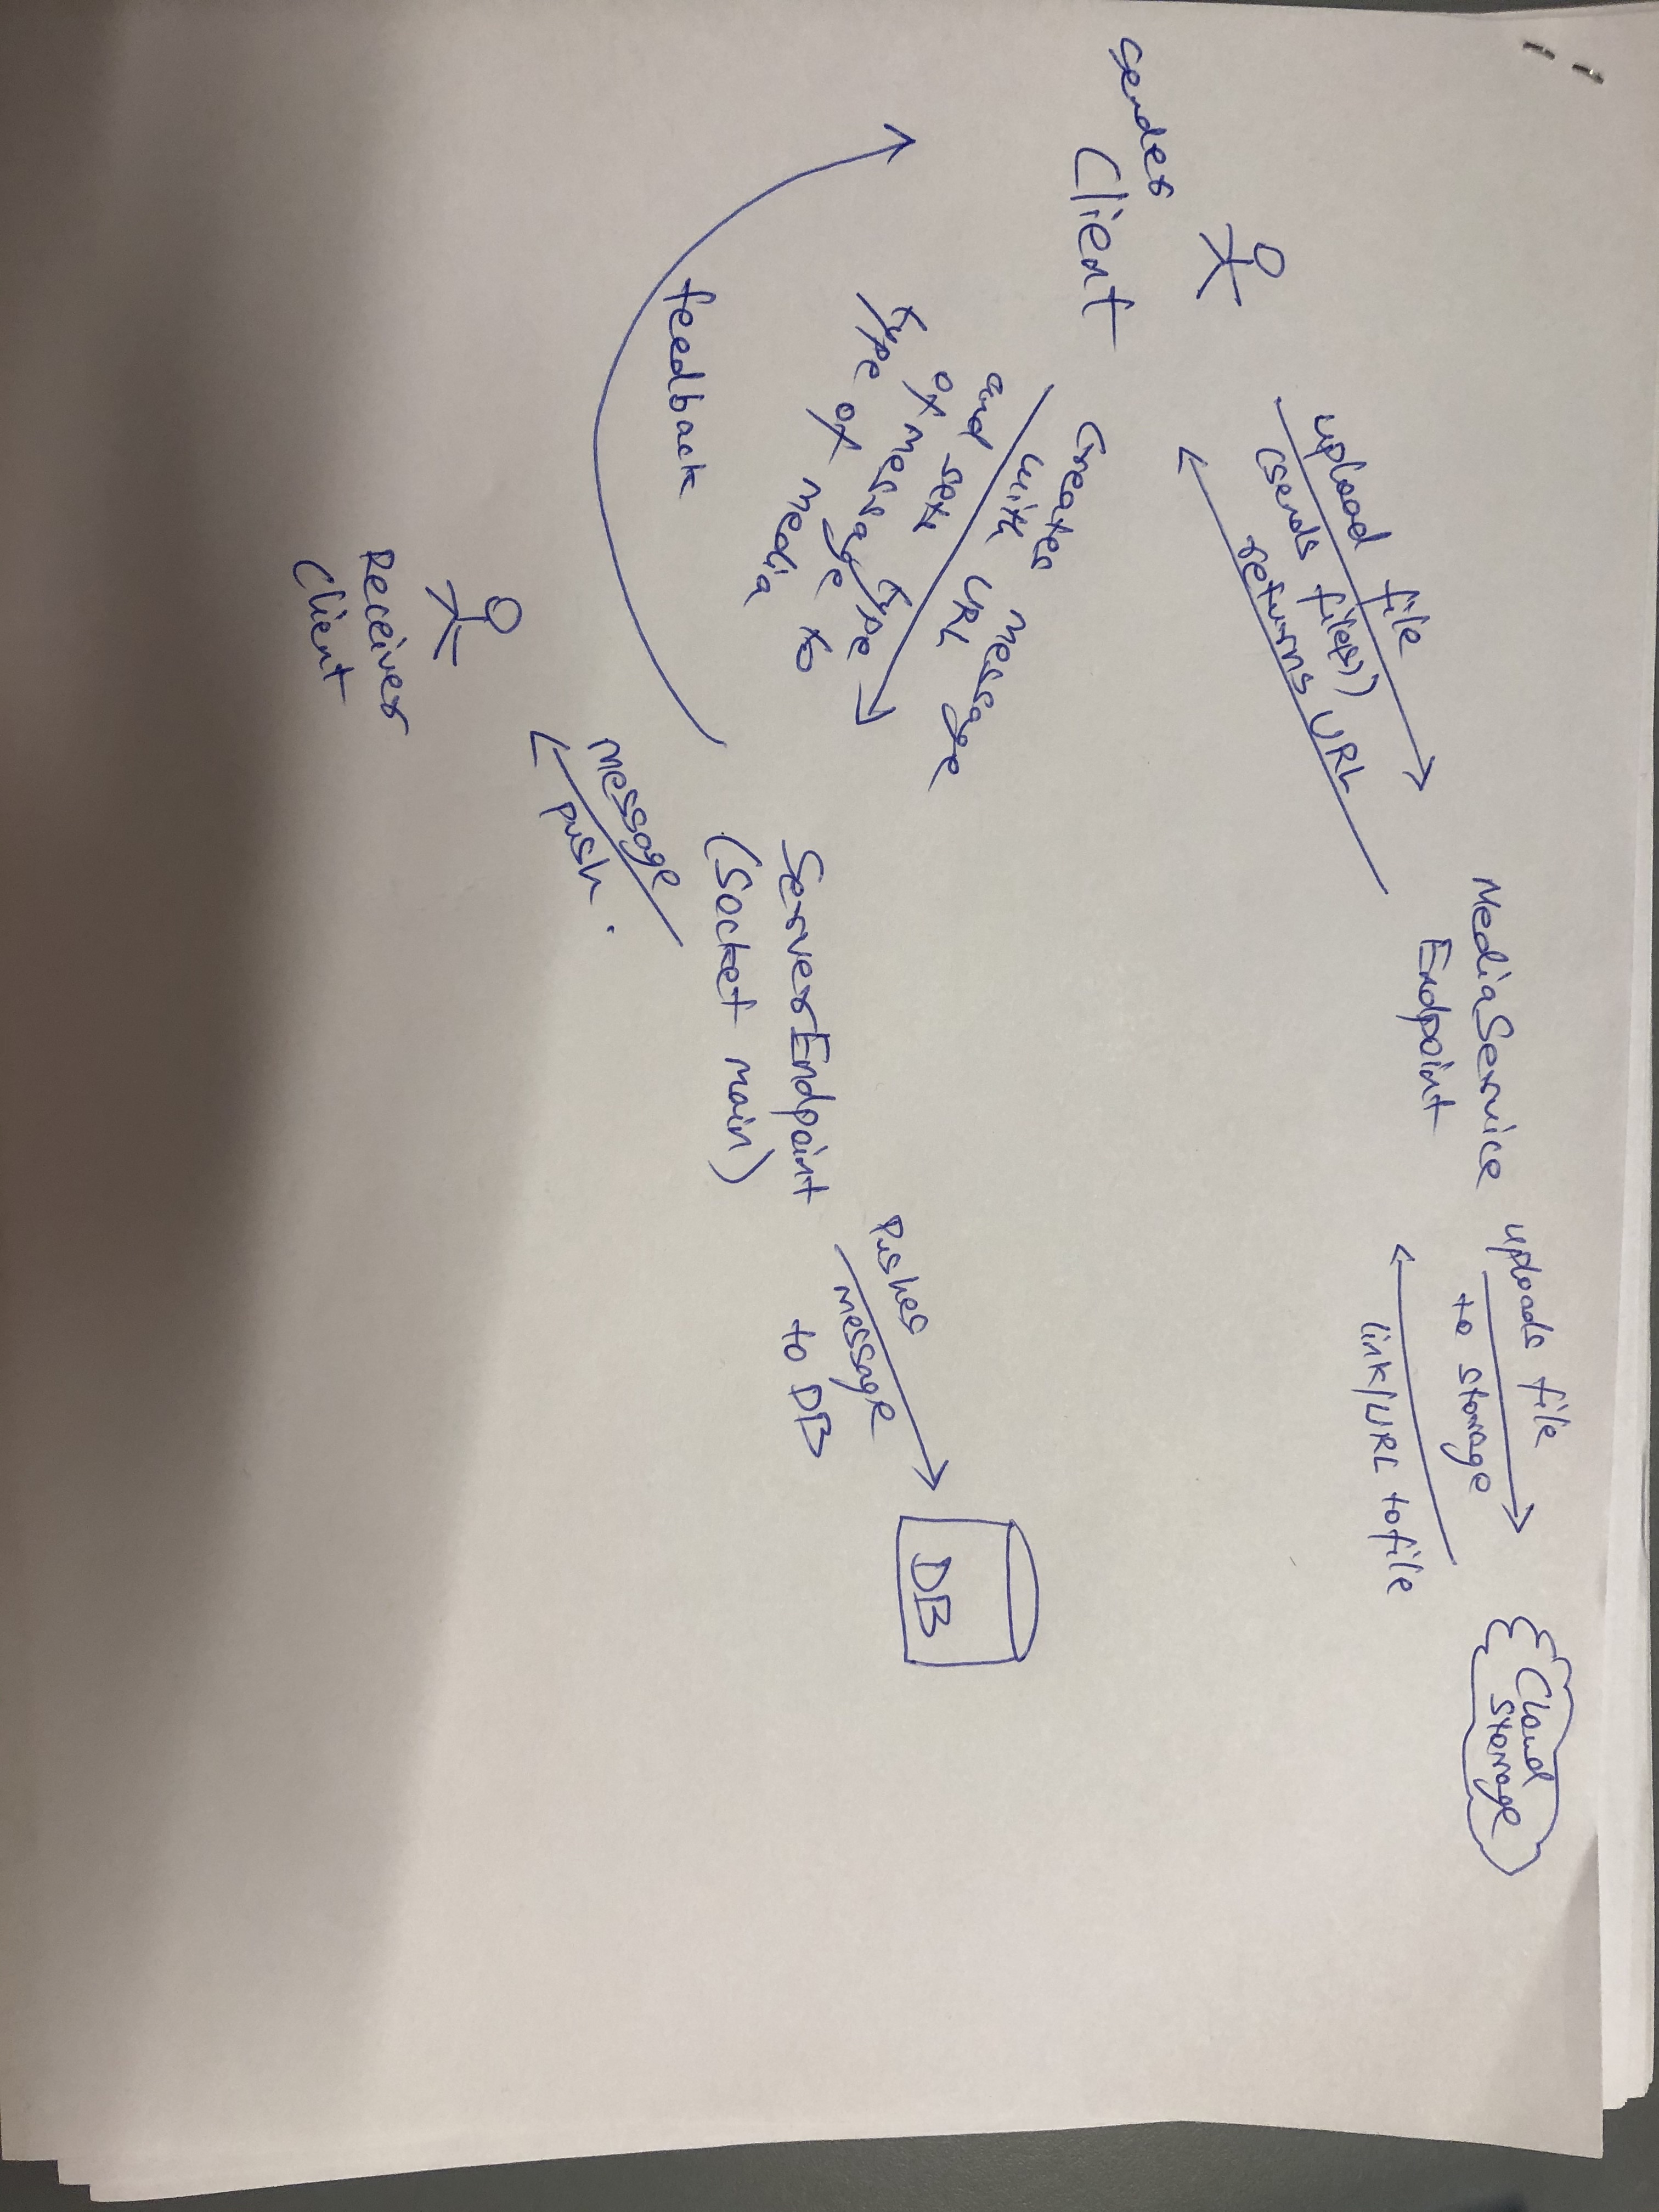 Sender
Client
upload file
(sends file(s))
returns URL
MediaService
Endpoint
uploads file
to storage
link/URL to file
Cloud
storage
Creates message
with URL
and sets type
of message to
type of media
feedback
ServerEndpoint
(Socket main)
Pushes
message
to DB
DB
message
push.
Receiver
Client